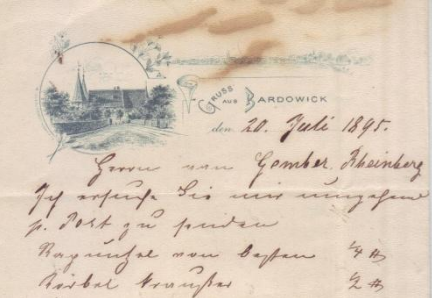 Gruss aus Bardowick
den 20. Juli 1895.
Herrn van Gember. Rheinberg
Ich ersuche Sie mir umgehend
p. Post zu senden
Rapunzel von besten 1/4 ℔
Kerbel krauster 1/2 ℔